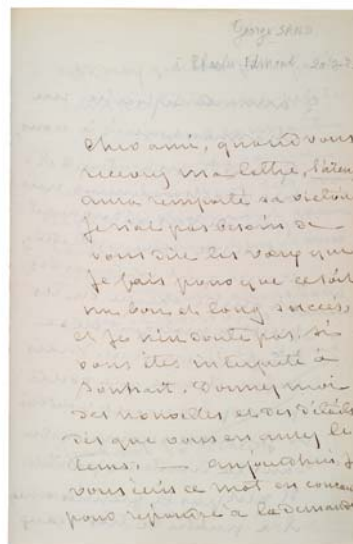 George SAND
à Charles Edmond, 20
cher ami, quand vous
recevrez ma lettre,
aura remporté sa victoire
Je n'ai pas besoin de
vous dire les vœux que
Je fais pour que ce soit
un bon et long succès,
et Je n'en doute pas, si
vous êtes interprété à
souhait. Donnez moi
des nouvelles et des détails
dès que vous en aurez le
tems. — aujourdhui, Je
vous écris ce mot en courant
pour répondre à la demande